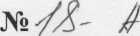 № 18- A